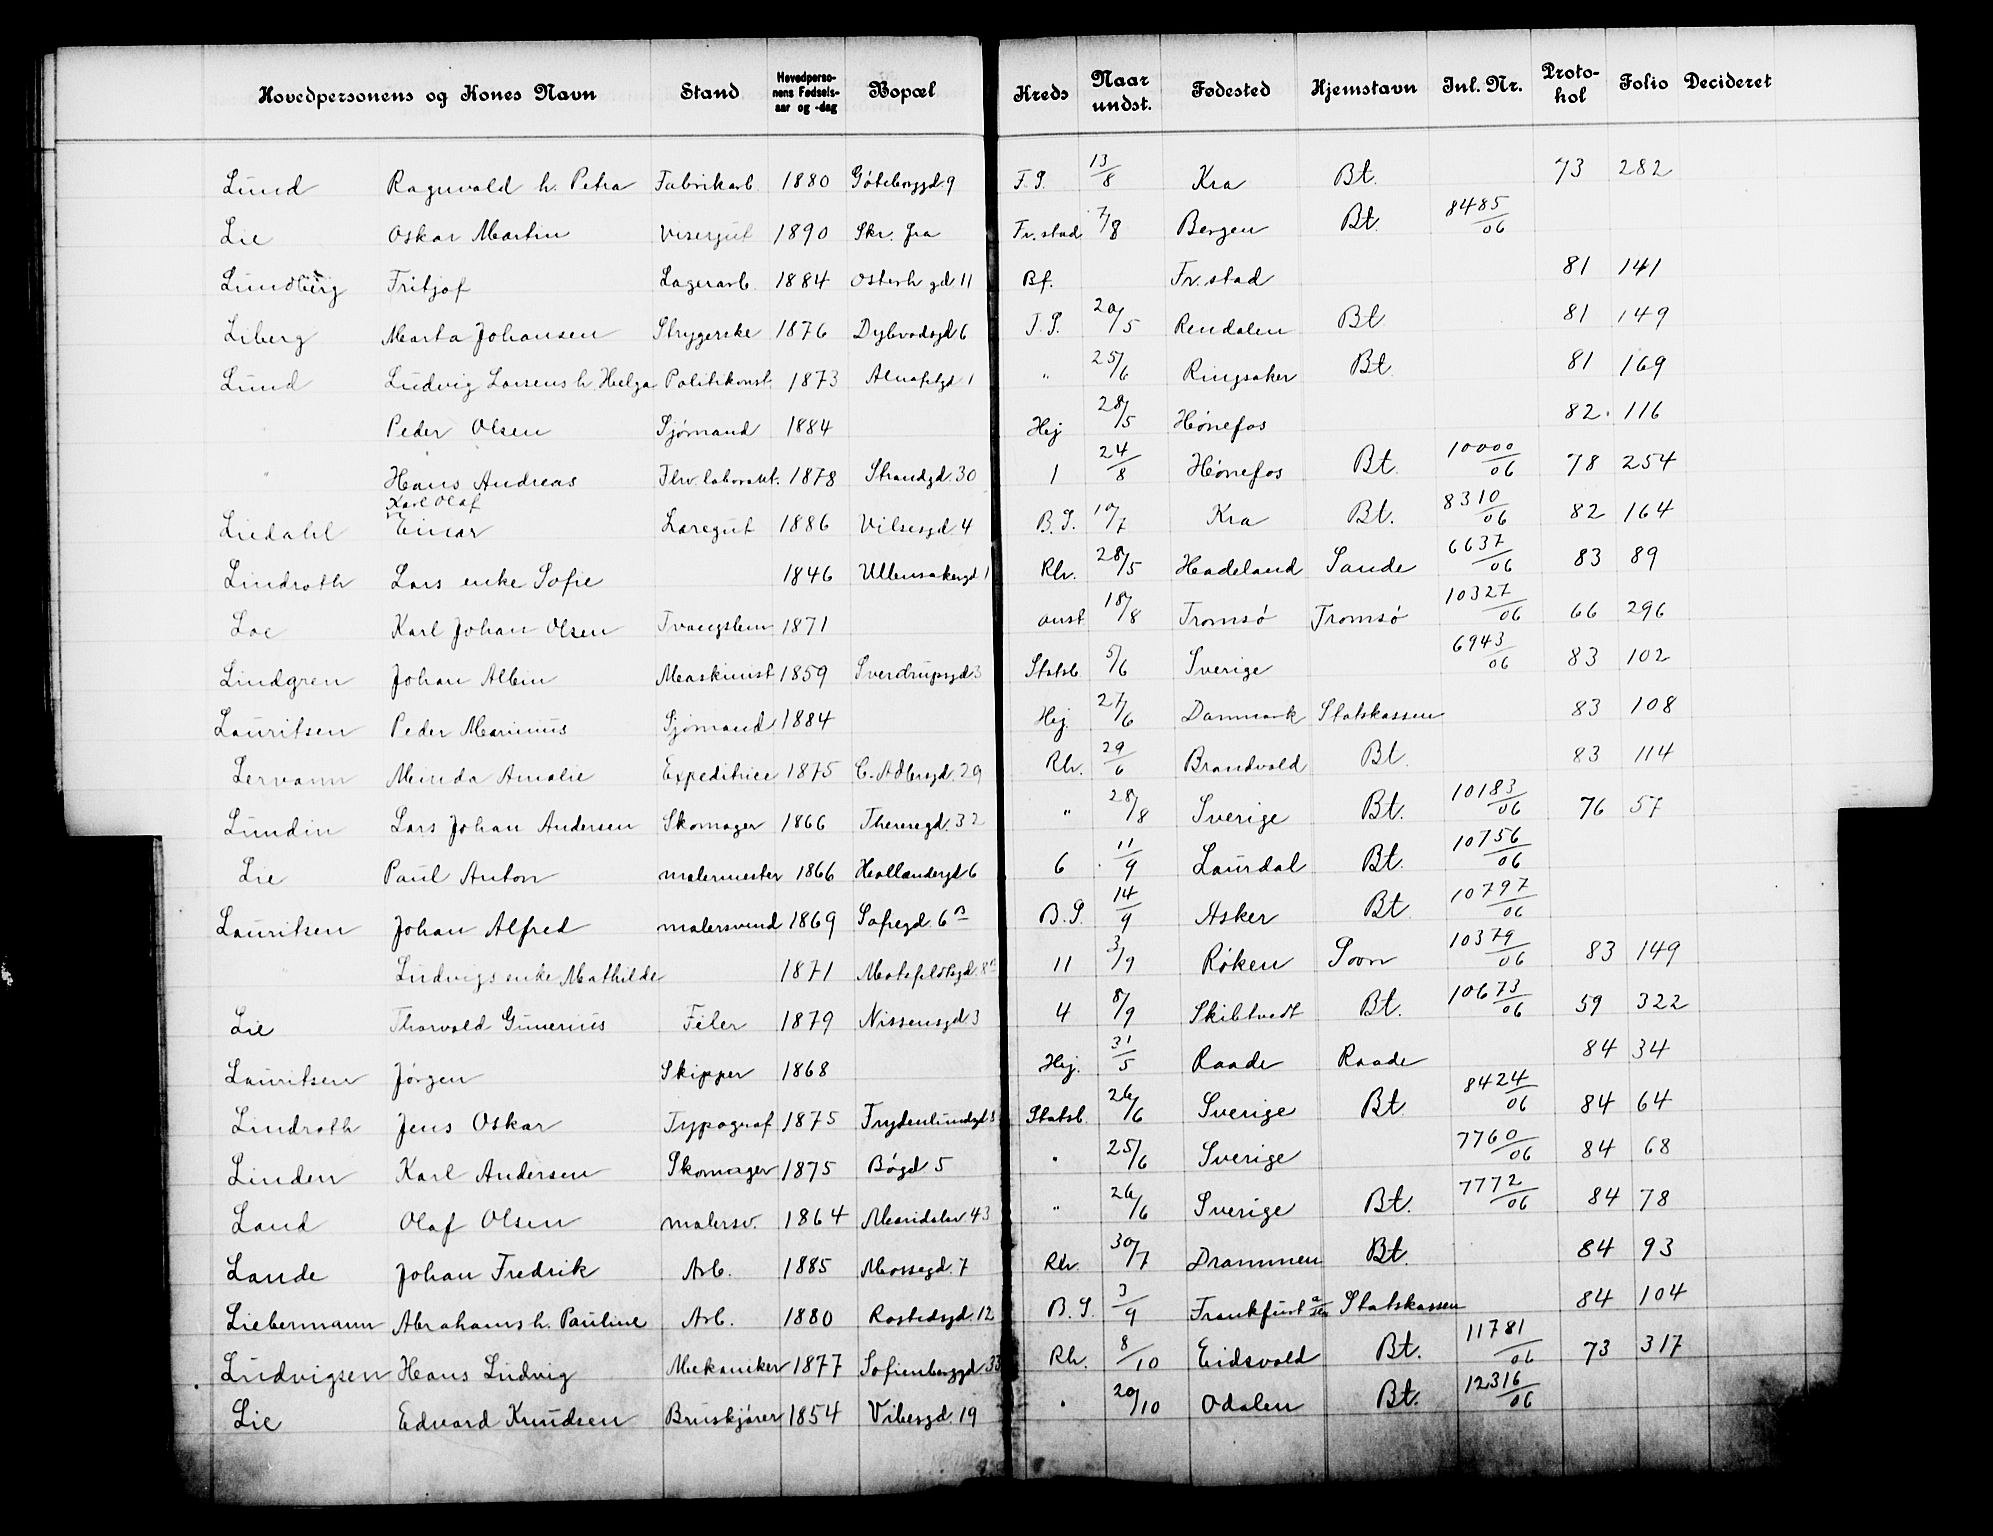 Hovedpersonens og Kones Navn Stand Hovedpersonens Fødselsaar og -dag Bopæl Kreds Naar undst. Fødested Hjemstavn Jnl. Nr. Protokol Folio Decideret
Lund Ragnvald h. Petra Fabrikarb. 1880 Göteborggd. 9 F.S. 13/8 Kra Bt. 73 282
Lie Oskar Martin Visergut 1890 Skr. fra Fr.stad 7/8 Bergen Bt. 8485/06
Lundberg Fritjof Lagerarb. 1884 Osterh gd. 11 Bf. Fr.stad 81 141
Liberg Marta Johansen Strygerske 1876 Dybvadsgd 6 F.S. 20/5 Rendalen Bt 81 149
Lund Ludvig Larsens h. Helga Politikonst. 1873 Alnafetgd 1 " 25/6 Ringsaker Bt. 81 169
" Peder Olsen Sjømand 1884 Hej 28/5 Hønefos 82. 116
" Hans Andreas Flv. laborant. 1878 Strandgd. 30 1 24/8 Hønefos Bt. 10000/06 78 254
Karl Olaf
Liedahl Einar Laregut 1886 Vilsesgd 4 B.S. 10/7 Kra Bt. 8310/06 82 164
Lindroth Lars enke Sofie 1846 Ullensakergd 1 Rh. 28/5 Hadeland Sande 6637/06 83 89
Loe Karl Johan Olsen Tvangslem 1871 anst. 18/8 Tromsö Tromsö 10327/06 66 296
Lindgren Johan Albin Maskinist 1859 Sverdrupsgd 3 Statsb. 5/6 Sverige 6943/06 83 102
Lauritsen Peder Marinius Sjømand 1884 Hej. 27/6 Danmark Statskassen 83 108
Lervann Minda Amalie Expeditrice 1875 C. Adlersgd. 29 Rh. 29/6 Brandvold Bt. 83 114
Lundin Lars Johan Andersen Skomager 1866 Theresegd. 32 " 28/8 Sverige Bt. 10183/06 76 57
Lie Paul Anton malermester 1866 Hollendergd 6 6 11/9 Laurdal Bt. 10756/06
Lauritsen Johan Alfred malersvend 1869 Sofiegd. 6 B B.S. 14/9 Asker Bt. 10797/06
" Ludvigs enke Mathilde 1871 11 3/9 Røken Soon 10379/06 83 149
Lie Thorvald Gunerius Feiler 1879 Nissensgd 3 4 8/9 Skibtvedt Bt. 10673/06 59 322
Lauritsen Jørgen Skipper 1868 Hej. 31/5 Raade Raade 84 34
Lindroth Jens Oskar Typograf 1875 Frydenlundgd 3 Statsb. 26/6 Sverige Bt. 8424/06 84 64
Linden Karl Andersen Skomager 1875 Bøgd 5 " 25/6 Sverige 7760/06 84 68
Land Olaf Olsen malersv. 1864 Maridalsv. 43 " 26/6 Sverige Bt. 7772/06 84 78
Lande Johan Fredrik Arb. 1885 Mossegd 7 Rh. 30/7 Drammen Bt. 84 93
Liebermann Abrahams h. Pauline Arb. 1880 Rostedsgd. 12 B.S. 3/9 Frankfurt Statskassen 84 104
Ludvigsen Hans Ludvig Mekaniker 1877 Sofienberggd. 33 Rh. 8/10 Eidsvold Bt. 11781/06 73 317
Lie Edvard Knudsen Bruskjører 1854 Vibesgd. 19 " 20/10 Odalen Bt. 12316/06